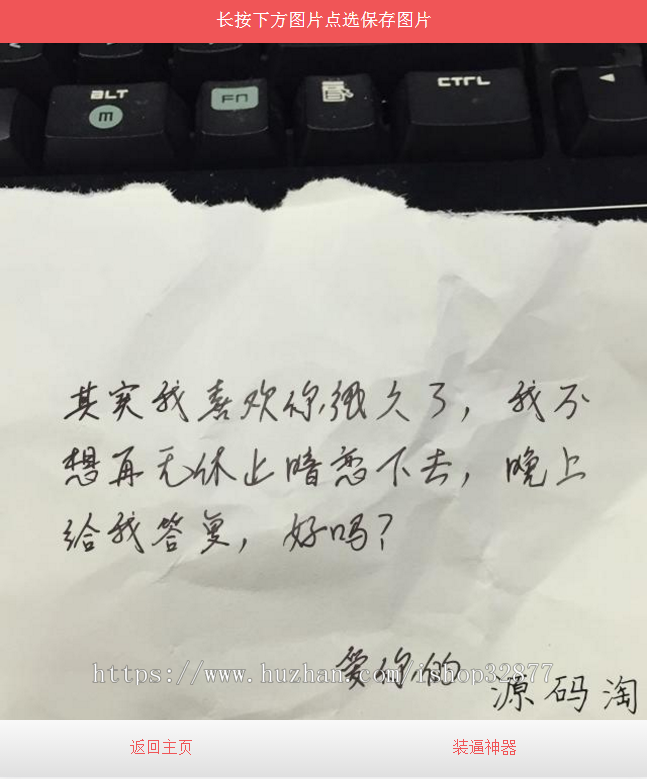 长按下方图片点选保存图片
ALT
M
FN
CTRL
其实我喜欢你很久了，我不
想再无休止暗恋下去，晚上
给我答复，好吗？
爱你的
源码淘
https://www.huzhan.com/ishop32877
返回主页
装逼神器